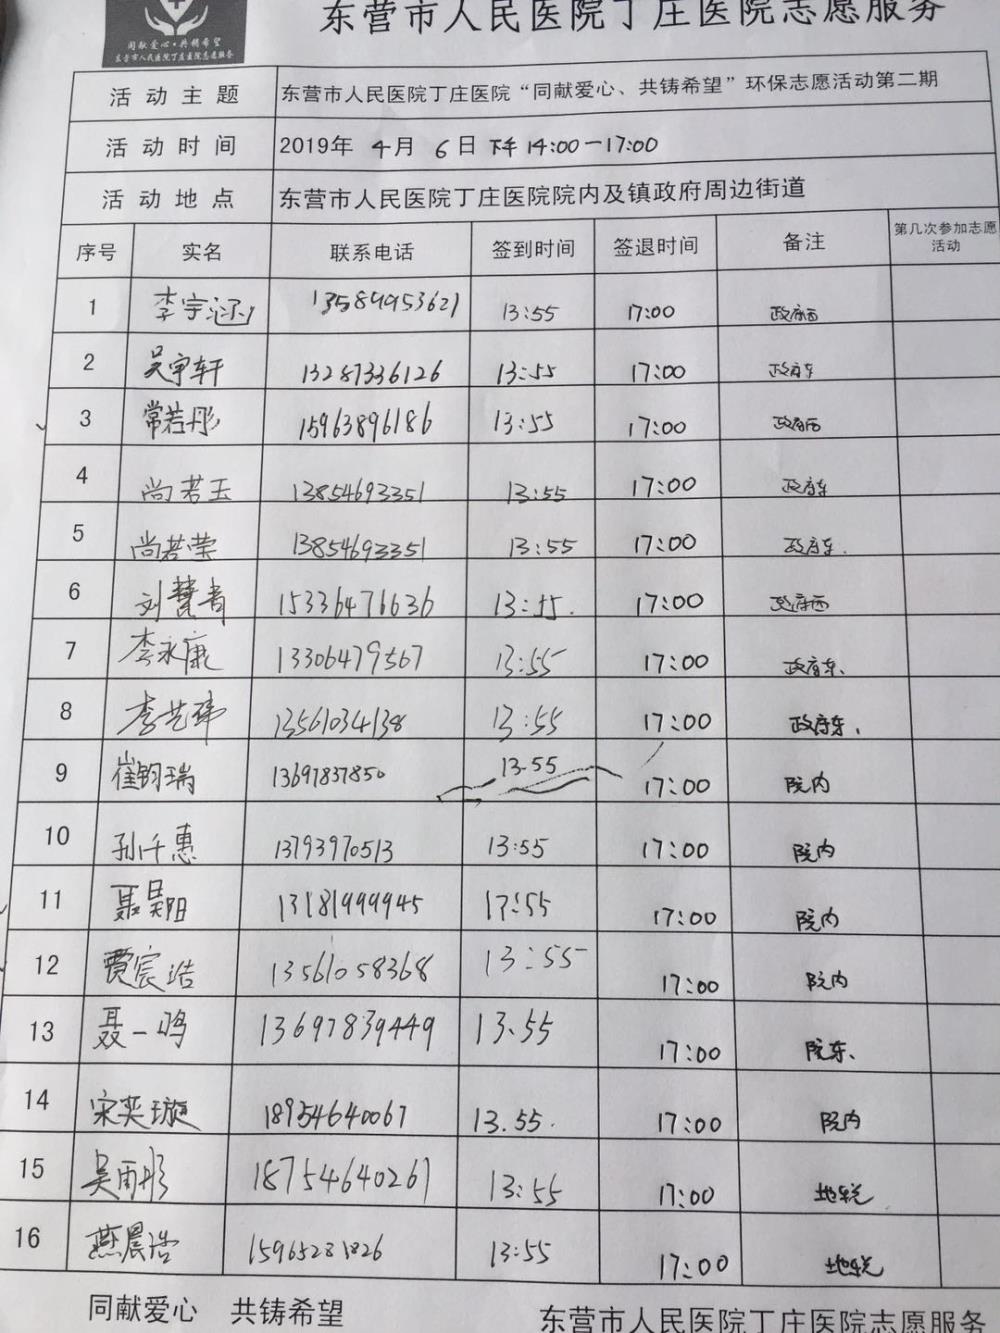 同献爱心·共铸希望
东营市人民医院丁庄医院志愿服务
东营市人民医院丁庄医院志愿服务
活动主题 东营市人民医院丁庄医院“同献爱心、共铸希望”环保志愿活动第二期
活动时间 2019年 4月 6日 下午 14:00-17:00
活动地点 东营市人民医院丁庄医院院内及镇政府周边街道
序号 实名 联系电话 签到时间 签退时间 备注 第几次参加志愿活动
1 李宇涵 13589953621 13:55 17:00 政府西
2 吴宇轩 13287336126 13:55 17:00 政府东
3 常若彤 15963896186 13:55 17:00 政府西
4 尚若玉 13854693351 13:55 17:00 政府东
5 尚若莹 13854693351 13:55 17:00 政府东.
6 刘慧青 15336476636 13:55. 17:00 政府西
7 李永康 13306479567 13:55 17:00 政府东、
8 李艺玮 13561034138 13:55 17:00 政府东、
9 崔钧瑞 13697837850 13.55 17:00 院内
10 孙千惠 13793970513 13:55 17:00 院内
11 聂昊阳 13181999945 17:55 17:00 院内
12 贾宸浩 13561058368 13:55 17:00 院内
13 聂一鸣 13697839449 13.55 17:00 院东、
14 宋奕璇 18954640067 13.55. 17:00 院内
15 吴雨彤 18754640267 13:55 17:00 地税
16 燕晨浩 15965281826 13:55 17:00 地税
同献爱心 共铸希望 东营市人民医院丁庄医院志愿服务